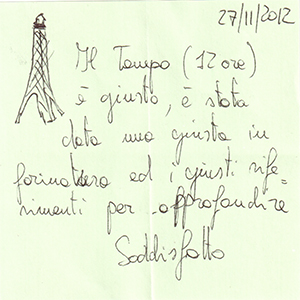 27/11/2012
Il Tempo (12 ore)
è giusto, è stata
data una giusta in
formativa ed i giusti rife=
rimenti per approfondire
Soddisfatto